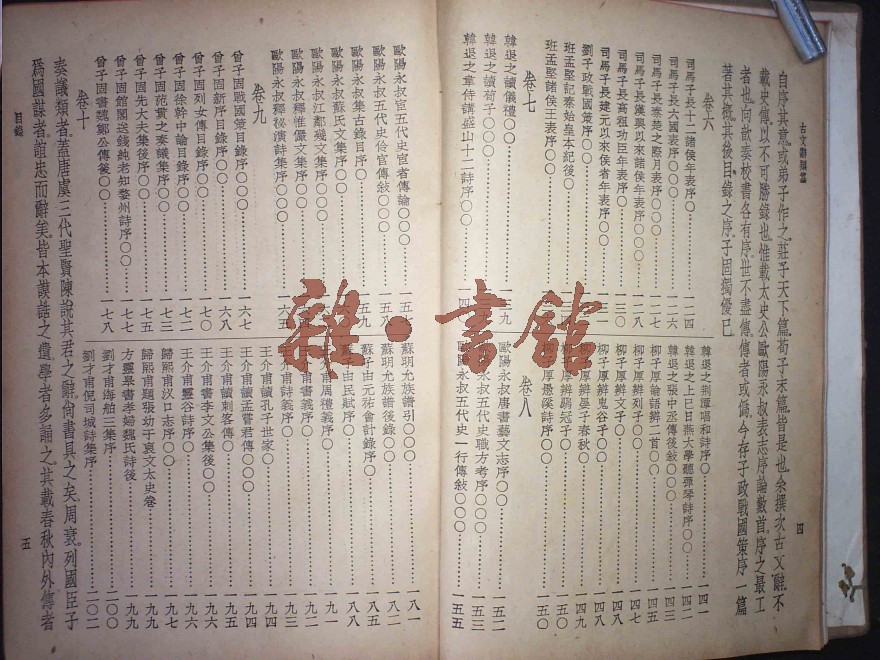 古文辭類纂
四
自序其意。或弟子作之。莊子天下篇。荀子末篇。皆是也。余撰次古文辭。不
載史傳。以不可勝錄也。惟載太史公歐陽永叔表志序論數首。序之最工
者也。向歆奏校書各有序。世不盡傳。傳者或偽。今存子政戰國策序一篇
著其概。其後目錄之序。子固獨優已。
卷六
司馬子長十二諸侯年表序〇……一二四
司馬子長六國表序〇〇……一二六
司馬子長秦楚之際月表序〇〇〇……一二七
司馬子長漢興以來諸侯年表序〇〇〇……一二八
司馬子長高祖功臣年表序〇……一三〇
司馬子長建元以來侯者年表序〇
劉子政戰國策序〇〇
班孟堅記秦始皇本紀後〇
班孟堅諸侯王表序〇
卷七
韓退之讀儀禮〇〇
韓退之讀荀子〇〇
韓退之韋侍講盛山十二詩序〇〇
韓退之荊潭唱和詩序〇……一四一
韓退之上巳日燕太學聽彈琴詩序〇〇……一四二
韓退之張中丞傳後敘〇〇〇
柳子厚論語辨二首〇〇……一四五
柳子厚辨列子〇〇
柳子厚辨文子〇……一四八
柳子厚辨鬼谷子〇〇……一四八
柳子厚辨晏子春秋〇……一四九
柳子厚辨鶡冠子〇……一五〇
柳子厚愚溪詩序〇〇……一五〇
卷八
歐陽永叔唐書藝文志序〇〇……一五二
歐陽永叔五代史職方考序〇〇〇……一五三
歐陽永叔五代史一行傳敘〇〇〇……一五五
歐陽永叔五代史宦者傳論〇〇〇……一五七
歐陽永叔五代史伶官傳敘〇〇〇
歐陽永叔集古錄目序〇〇
歐陽永叔蘇氏文集序〇〇
歐陽永叔江鄰幾文集序〇〇〇
歐陽永叔釋惟儼文集序〇〇
歐陽永叔釋祕演詩集序〇〇〇……一六五
卷九
曾子固戰國策目錄序〇〇〇……一六七
曾子固新序目錄序〇〇……一六八
曾子固列女傳目錄序〇〇……一七〇
曾子固徐幹中論目錄序〇……一七二
曾子固范貫之奏議集序〇〇……一七三
曾子固先大夫集後序〇〇……一七五
曾子固館閣送錢純老知婺州詩序〇〇……一七七
曾子固書魏鄭公傳後〇〇……一七八
蘇明允族譜引〇〇〇……一八一
蘇明允族譜後錄序〇……一八二
蘇子由元祐會計錄序〇……一八五
蘇子由民賦序〇……一八八
王介甫周禮義序〇……一九一
王介甫書義序〇……一九二
王介甫詩義序〇……一九三
王介甫讀孔子世家〇……一九四
王介甫讀孟嘗君傳〇〇……一九四
王介甫讀刺客傳〇……一九五
王介甫書李文公集後〇〇……一九六
王介甫靈谷詩序〇……一九六
歸熙甫汉口志序〇〇……一九七
歸熙甫題張幼于裒文太史卷……一九九
方靈皋書孝婦魏氏詩後……一九九
劉才甫海舶三集序……二〇〇
劉才甫倪司城詩集序……二〇二
卷十
奏議類者。蓋唐虞三代聖賢陳說其君之辭。尚書具之矣。周衰。列國臣子
爲國謀者。誼忠而辭美。皆本謨誥之遺。學者多誦之。其載春秋內外傳者
目錄
五
雜·書館